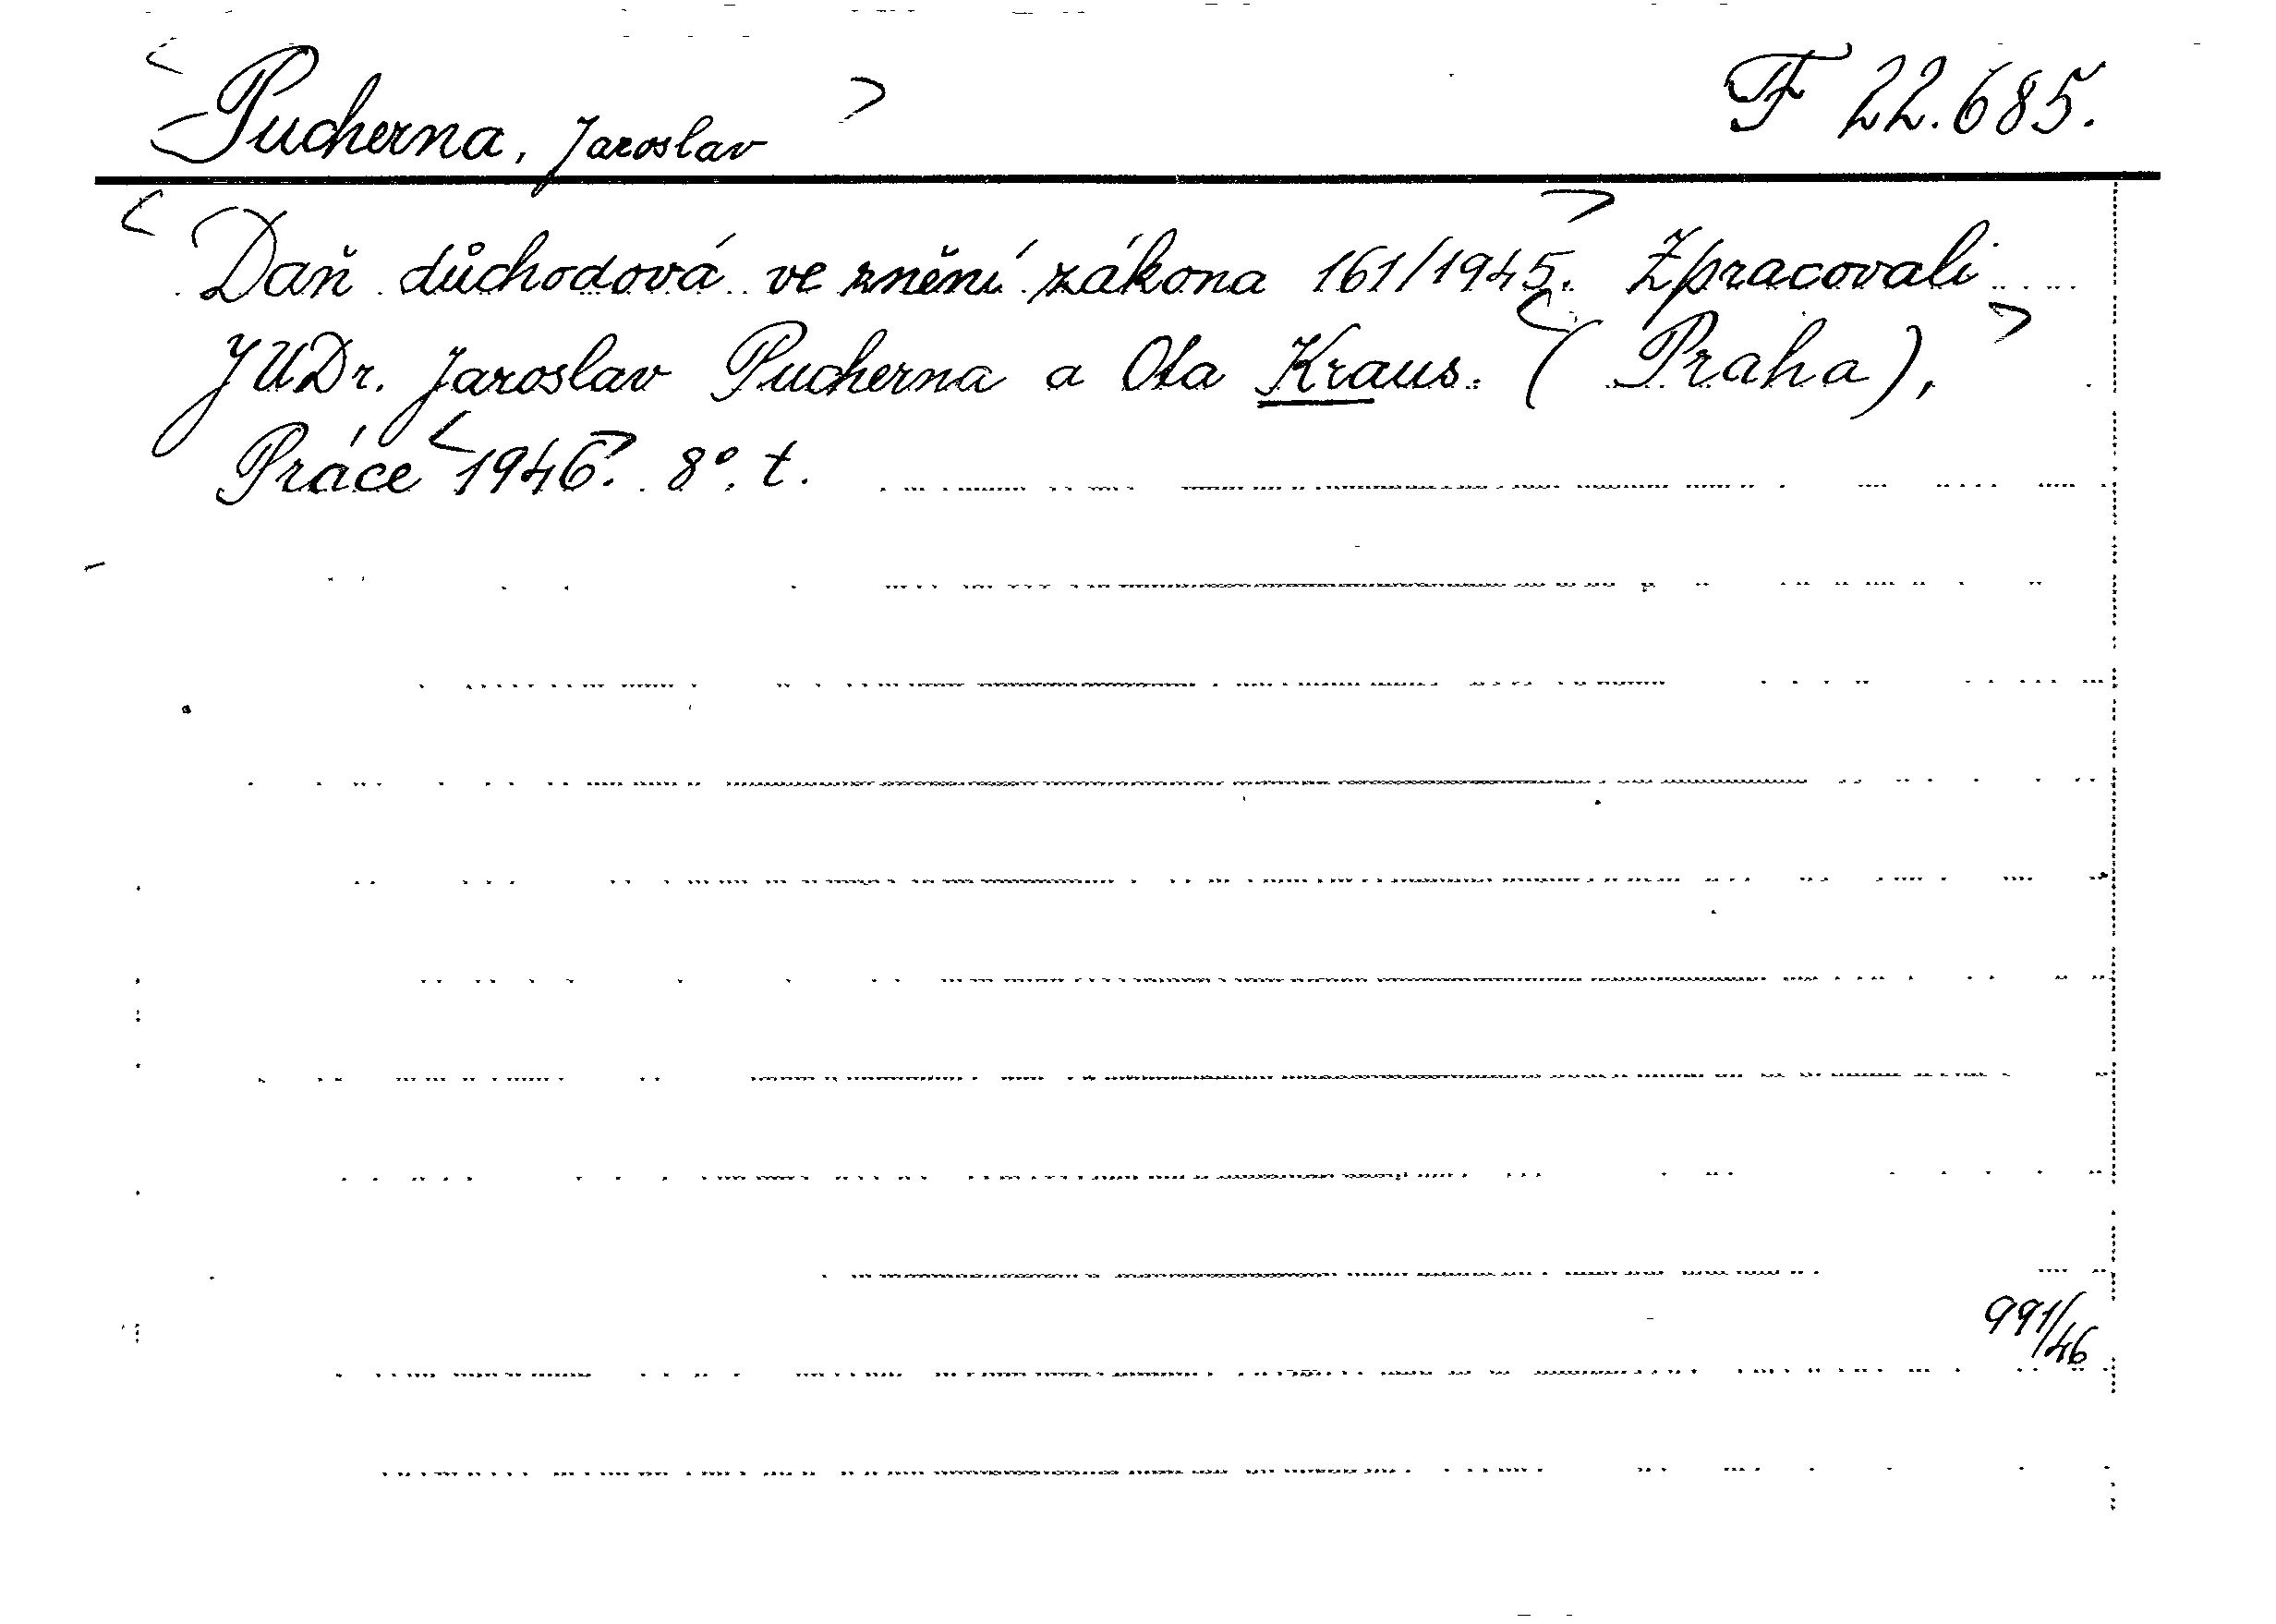 < Pucherna, Jaroslav > F 22.685.
< Daň důchodová ve znění zákona 161/1945. > Zpracovali
JUDr. Jaroslav Pucherna a Ota Kraus. < ( Praha ), >
Práce < 1946. > 8°. t.
991/46